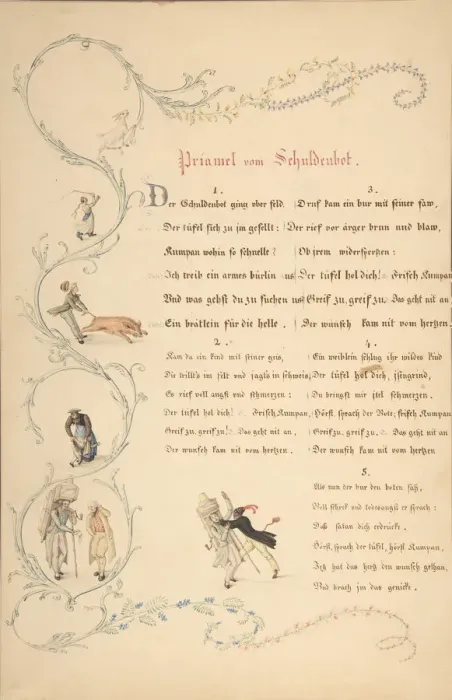 Priamel vom Schuldenbot.
1.
Der Schuldenbot ging vber feld.
Der tüfel sich zu jm gesellt:
Kumpan wohin so schnelle?
Ich treib ein armes bürlin us
Vnd was gehst du zu suchen us
Ein brätlein für die helle.
2.
Kam da ein kind mit seiner geis,
Die wills im filt und jagts in schweis,
Es rief voll angst und schmerzen:
Der tüfel hol dich! Frisch Kumpan,
Greif zu, greif zu! Das geht nit an,
Der wunsch kam nit vom hertzen.
3.
Druf kam ein bur mit seiner saw,
Der rief vor ärger brun und blaw,
Ob jrem widersperßen:
Der tüfel hol dich! Frisch Kumpan
Greif zu, greif zu. Das geht nit an
Der wunsch kam nit vom hertzen.
4.
Ein weiblein schlug ihr wildes kind
Der tüfel hol dich,
Du bringst mir jtel schmerzen.
Hörst, sprach der Bote, frisch Kumpan
Greif zu, greif zu. Das geht nit an
Der wunsch kam nit vom hertzen
5.
Als nun der bur den boten sah,
Voll schreck und todesangst er sprach:
Daß satan dich erdrücke.
Hörst, sprach der tüfel, hörst Kumpan,
Jetz hat das hertz den wunsch gethan,
Vnd brach jm das genicke.